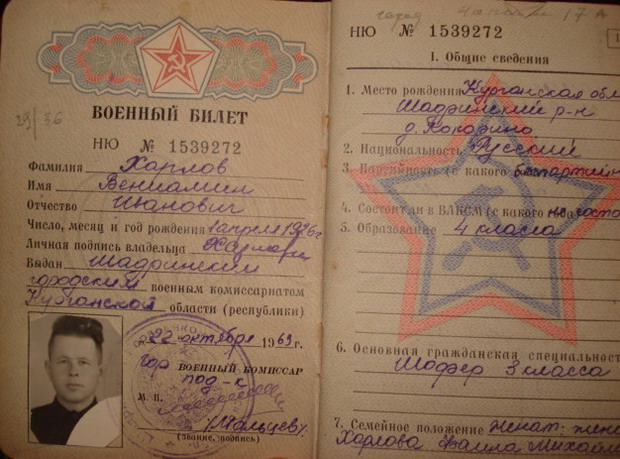 ВОЕННЫЙ БИЛЕТ
НЮ № 1539272
Фамилия Харлов
Имя Вениамин
Отчество Иванович
Число, месяц и год рождения 1 апреля 1926 г
Личная подпись владельца
Выдан Шадринским
городским военным комиссариатом
Курганской области (республики)
22 октября 1963 г.
гор ВОЕННЫЙ КОМИССАР
под-к
М. П.
/Мальцев/
(звание, подпись)
29/36
НЮ № 1539272
1
I. Общие сведения
1. Место рождения Курганская обл
Шадринский р-н
2. Национальность Русский
3. Партийность (с какого беспартийн
4. Состоит ли в ВЛКСМ (с какого не состо
5. Образование 4 класса
6. Основная гражданская специальность
Шофер 3 класса
7. Семейное положение Женат. жена
Харлова Михайл